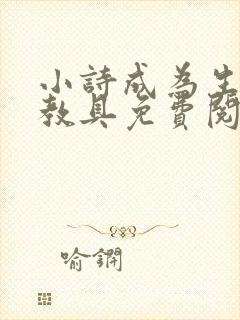 小詩成為生
教具免費閱
喻鐦